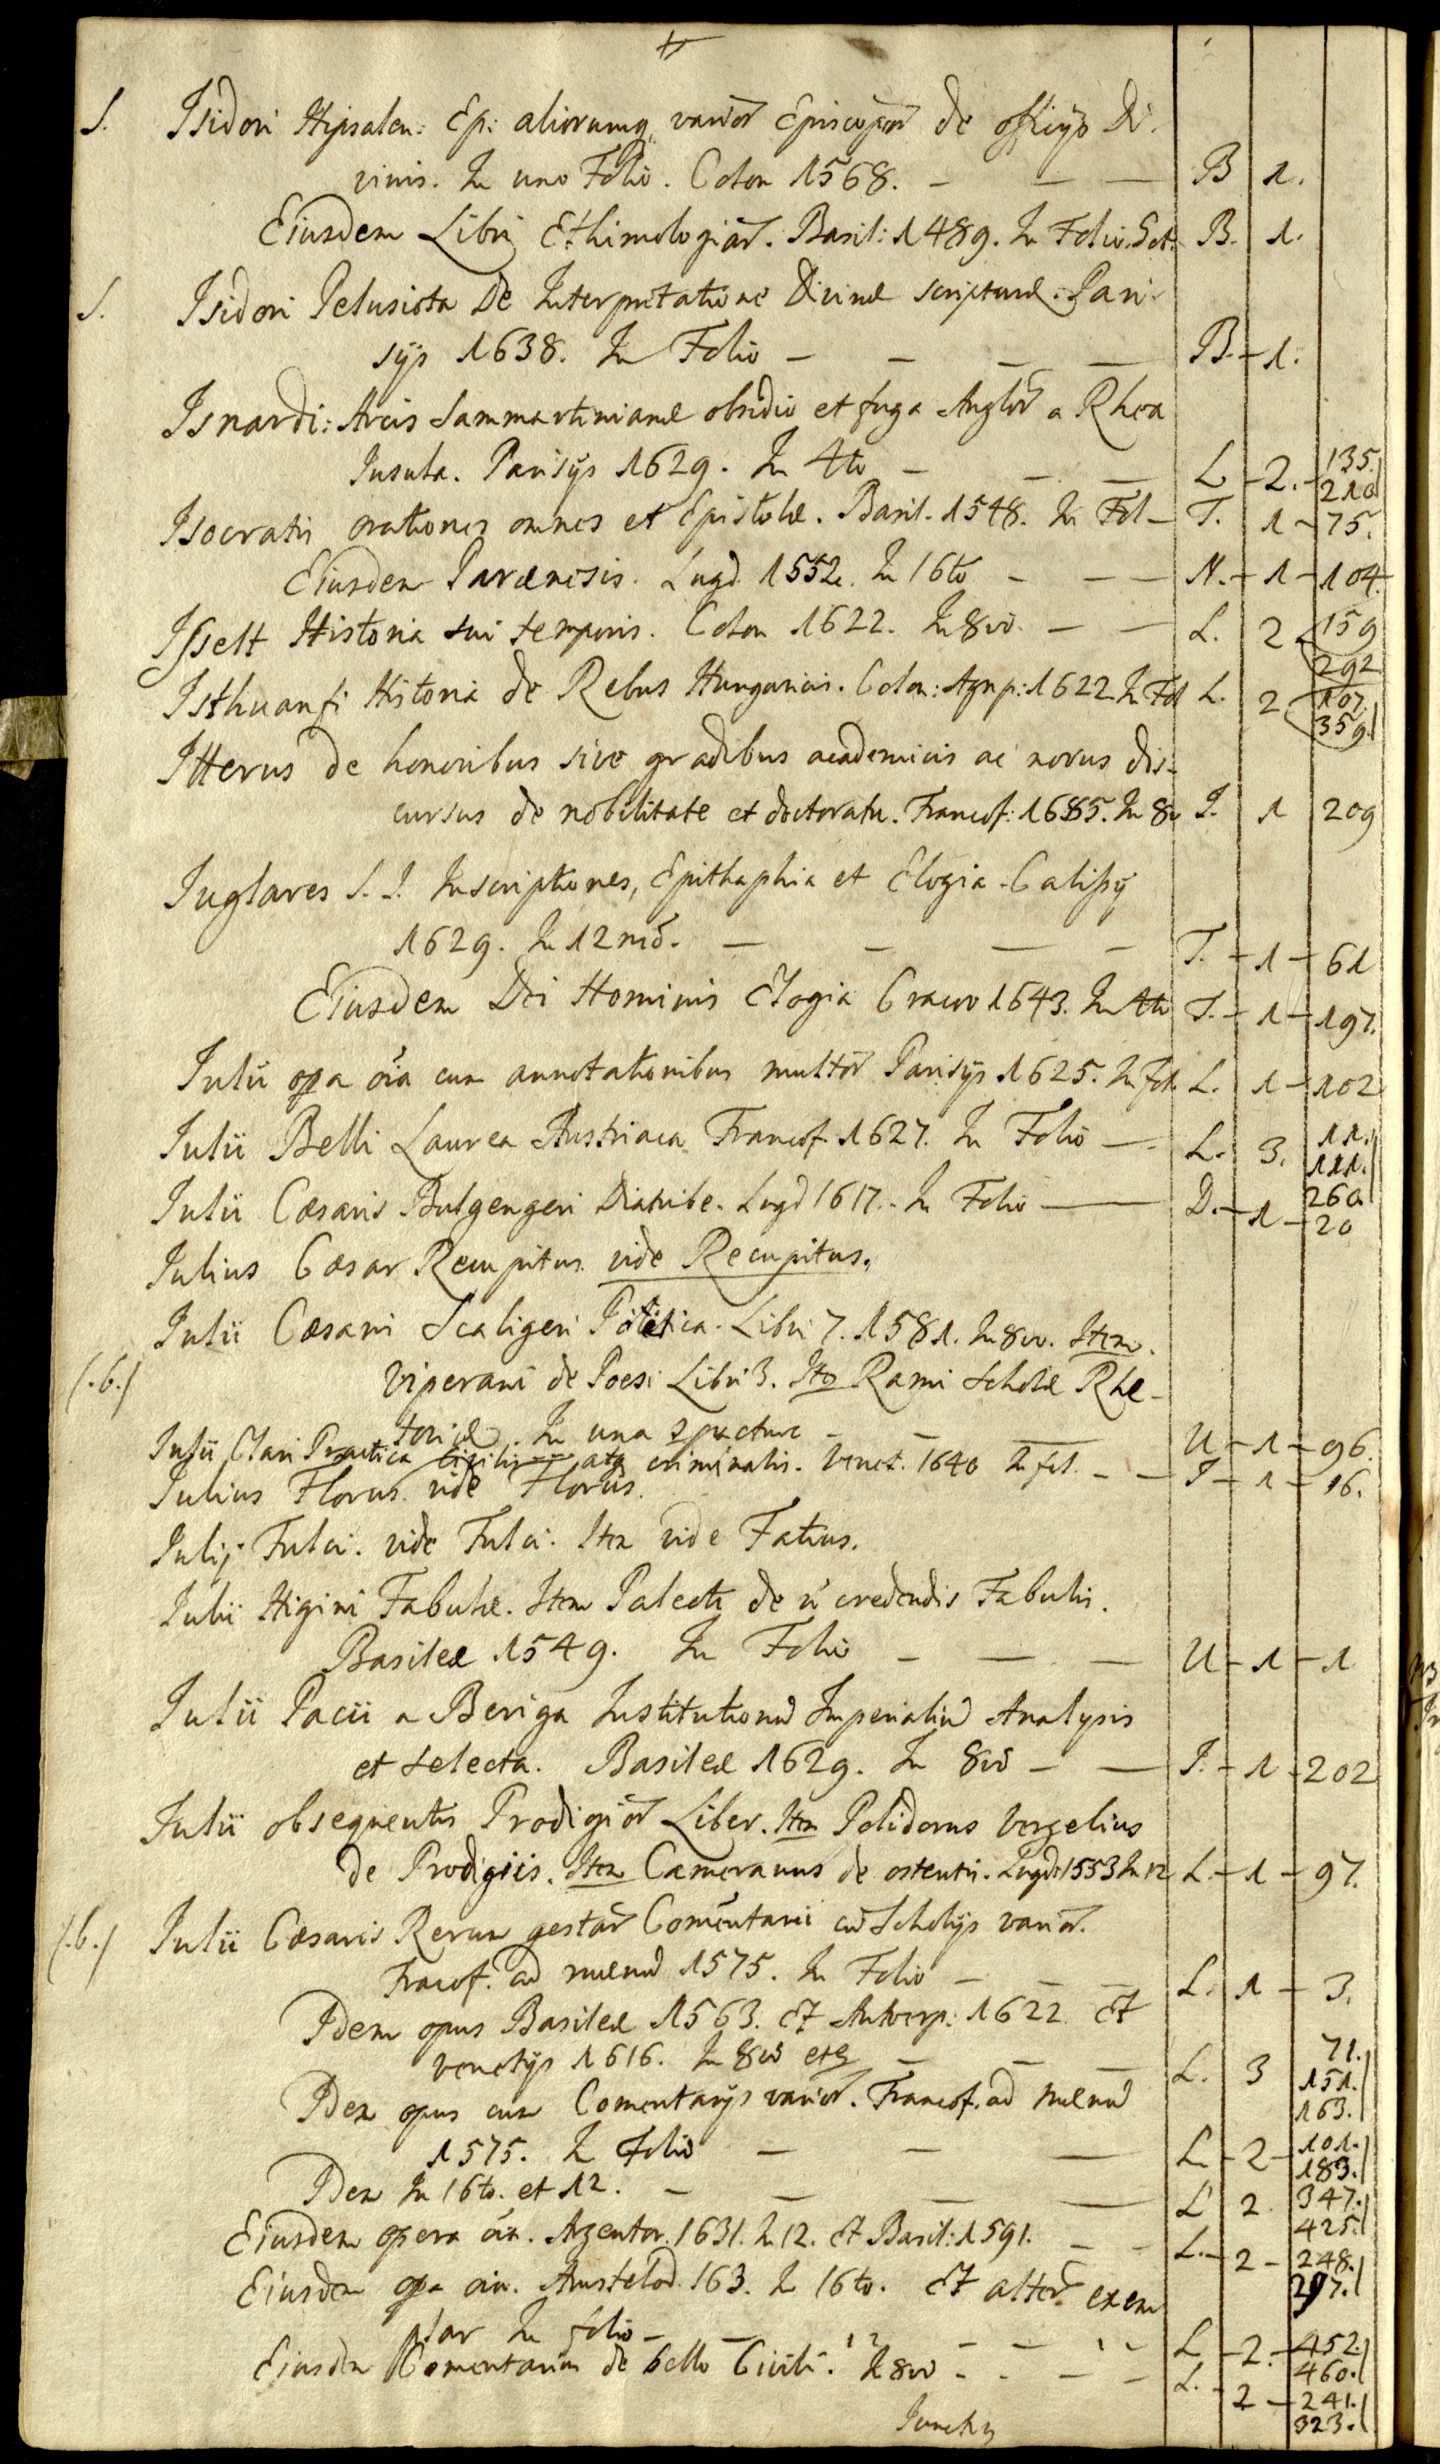 S. Isidori Hipsalen: Ep: aliorumq varior Episcopor de officijs Di-
vinis. In uno Folio. Colon 1568. — — — B 1.
Eiusdem Libri Ethimologiar. Basil: 1489. In Folio. Got. B. 1.
S. Isidori Pelusiota De Interpretatione Divinæ scripturæ. Pari-
sijs 1638. In Folio — — — — B. — 1.
Isnardi: Arcis Sammartinianæ obsidio et fuga Anglor a Rhea
Insula. Parisijs 1629. In 4to — — — L — 2. — 135. 210
Isocratis orationes omnes et Epistolæ. Basil. 1548. In Fol — T. 1 — 75.
Eiusdem Parænesis. Lugd. 1552. In 16to — — — N. — 1 — 104.
Isselt Historia sui temporis. Colon 1622. In 8vo. — — L. 2 159 292
Isthuanfi Historia de Rebus Hungaricis. Colon: Agrip: 1622 In Fol L. 2 107. 359.
Itterus de honoribus sive gradibus academicis ac novus dis-
cursus de nobilitate et doctoratu. Francof: 1685. In 8v I. 1 209
Iuglares S. I. Inscriptiones, Epithaphia et Elogia. Calissy
1629. In 12mo. — — — — T. — 1 — 61
Eiusdem Dei Hominis Elogia Craco 1643. In 4to T. — 1 — 197.
Iulii opa oia cum annotationibus multor Parisijs 1625. In fol. L. 1 — 102
Iulii Belli Laurea Austriaca Francof. 1627. In Folio — L. 3. 11. 111. 260.
Iulii Cæsaris Bulgengeri Diatribe. Lugd 1617. In Folio — D. — 1 — 20
Iulius Cæsar Recupitus vide Recupitus.
Iulii Cæsaris Scaligeri Poetica. Libri 7. 1581. In 8vo. Item.
(.b.) Viperani de Poesi Libri 3. Ito Rami Scholæ Rhe-
toricæ. In una 2pacture — — — U — 1 — 96.
Iulii Clari Practica Civilis atq criminalis. Venet. 1640 In fol. — — I — 1 — 16.
Iulius Florus. vide Florus.
Iulij Fulci. vide Fulci. Item vide Fatius.
Iulii Higini Fabulæ. Item Palecti de ñ credendis Fabulis.
Basileæ 1549. In Folio — — — U — 1 — 1
Iulii Pacii a Beriga Institutionũ Imperialiũ Analysis
et selecta. Basileæ 1629. In 8vo — — I. — 1 — 202
Iulii obsequentis Prodigior Liber. Item Polidorus Vergelius
de Prodigiis. Item Camerarius de ostentis. Lugd: 1553 In 12 L. — 1 — 97.
(.b.) Iulii Cæsaris Rerum gestar Comentarii cũ Scholijs varior.
Fracof. ad mænũ 1575. In Folio — — — L. 1 — 3.
Idem opus Basileæ 1563. Et Antverp: 1622. Et
venetijs 1616. In 8vo etc — — — L. 3 71. 151. 163.
Idem opus cum Comentarijs varior. Francof. ad mænũ
1575. In Folio — — — L — 2 — 101. 183.
Idem In 16to. et 12. — — — — L 2. 347. 425.
Eiusdem opera oia. Argentor. 1631. In 12. Et Basil: 1591. — — L. — 2 — 248. 297.
Eiusdem opa oia. Amstelod. 163. In 16to. Et alter exem
plar In folio — — — — L — 2. — 452. 460.
Eiusdem Comentarium de bello Civili. In 8vo — — — — L. — 2 — 241. 323.